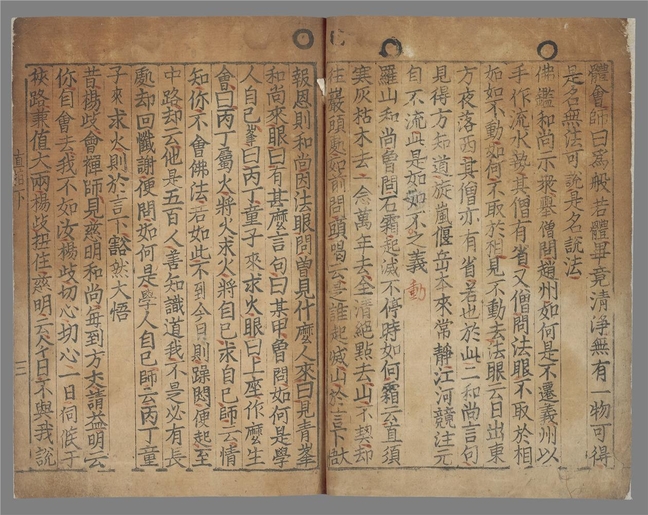 體會師曰爲般若體畢竟清淨無有一物可得
是名無法可說是名說法
佛鑑和尚示衆擧僧問趙州如何是不遷義州以
手作流水勢其僧有省又僧問法眼不取於相
如如不動如何不取於相見不動去法眼云日出東
方夜落西其僧亦有省若也於此二和尚言句
見得方知道旋嵐偃岳本來常靜江河競注元
自不流此是如如不之義
動
羅山和尚曾問石霜起滅不停時如何霜云直須
寒灰枯木去一念萬年去全清絕點去山不契却
往巖頭處如前問頭喝云是誰起滅山於言下
報恩則和尚因法眼問曾見什麼人來曰見靑峯
和尚來眼曰有甚麼言句曰某甲曾問如何是學
人自己峯曰丙丁童子來求火眼曰上座作麼生
會曰丙丁屬火將火求火將自己求自己師云情
知你不會佛法若如此不到今日則躁悶便起至
中路却云他是五百人善知識道我不是必有長
處却回懺謝便問如何是學人自己師云丙丁童
子來求火則於言下豁然大悟
昔楊歧會禪師見慈明和尚每到方丈請益明云
你自會去我不如汝楊歧切心切心一日伺候于
狹路兼值大雨楊歧扭住慈明云今日不與我說
直指下
三